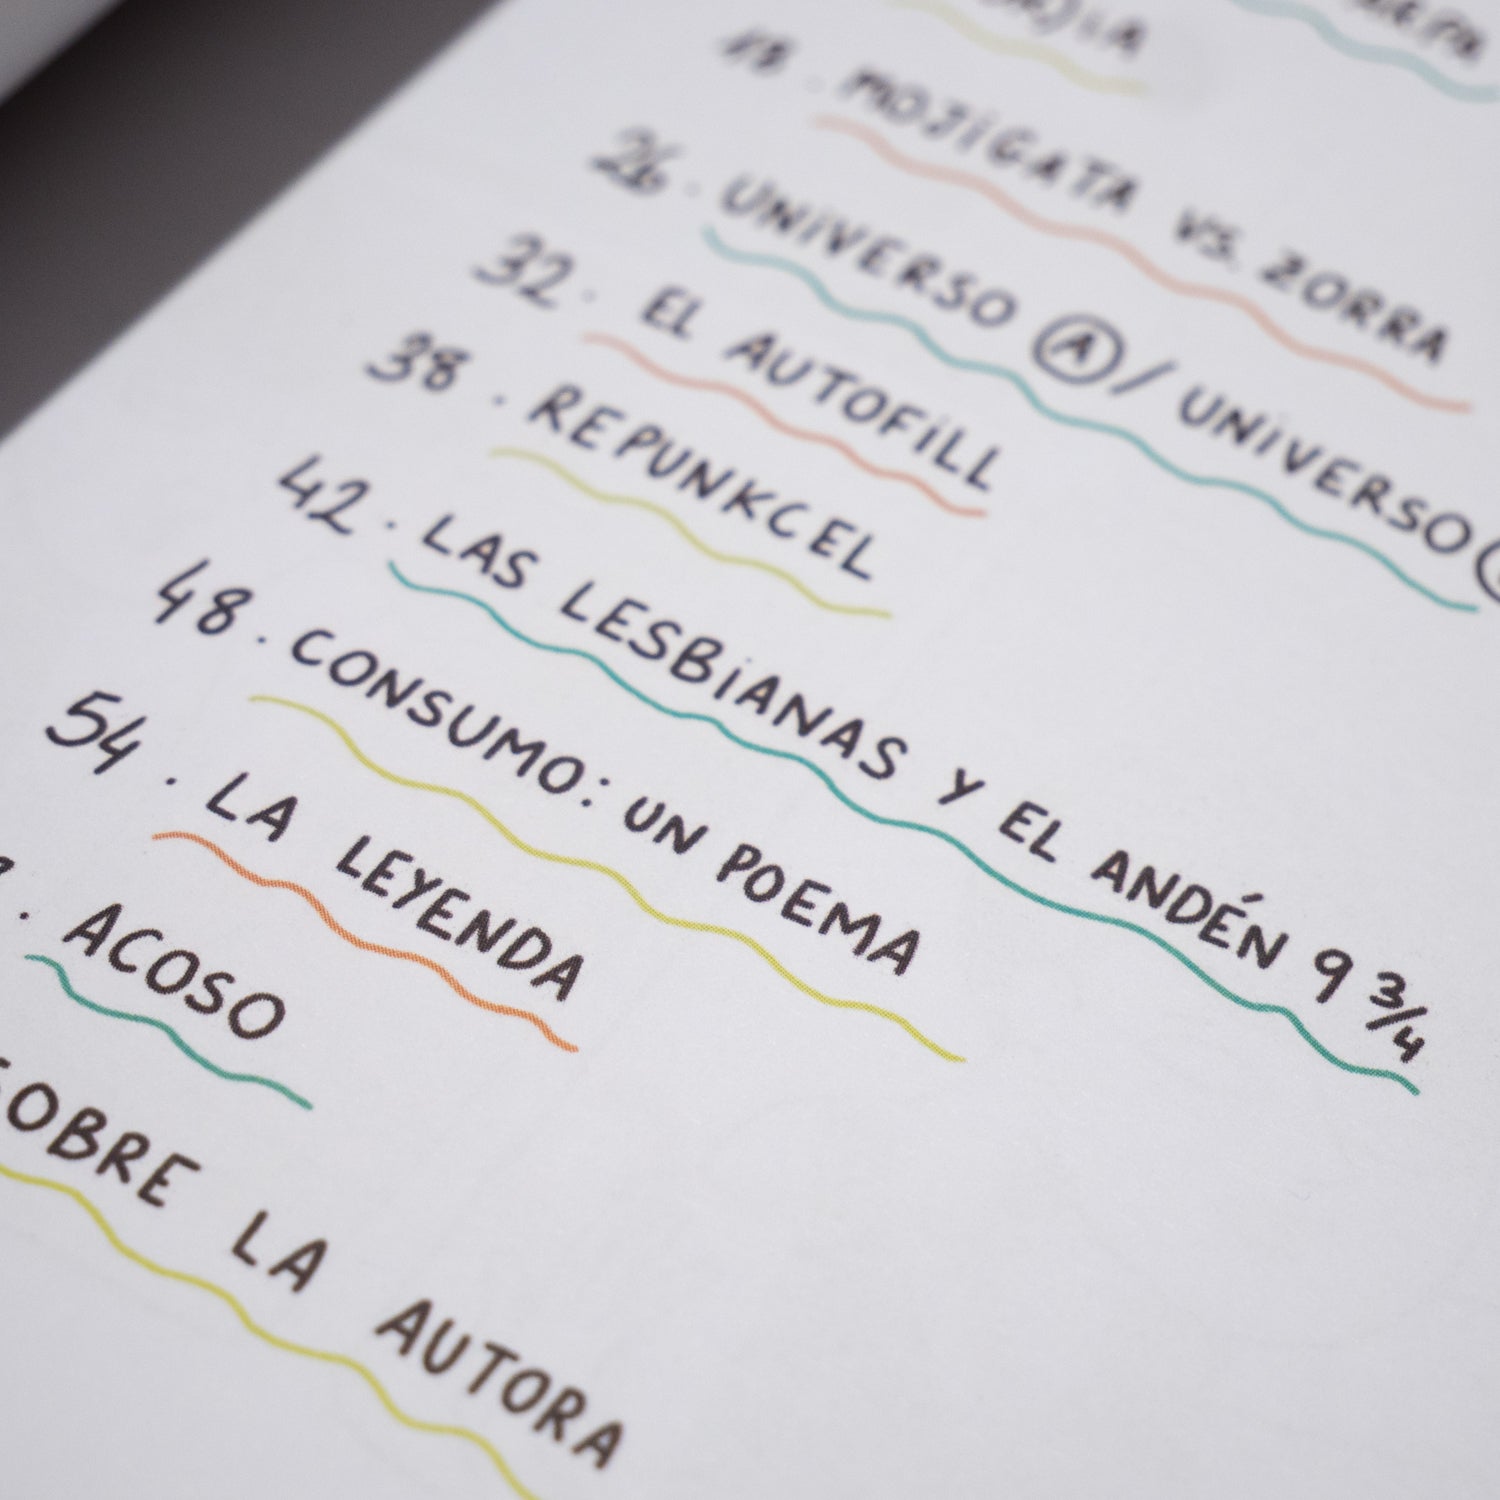 18. MOJIGATA VS. ZORRA
26. UNIVERSO Ⓐ / UNIVERSO
32. EL AUTOFILL
38. REPUNKCEL
42. LAS LESBIANAS Y EL ANDÉN 9 ¾
48. CONSUMO: UN POEMA
54. LA LEYENDA
. ACOSO
SOBRE LA AUTORA